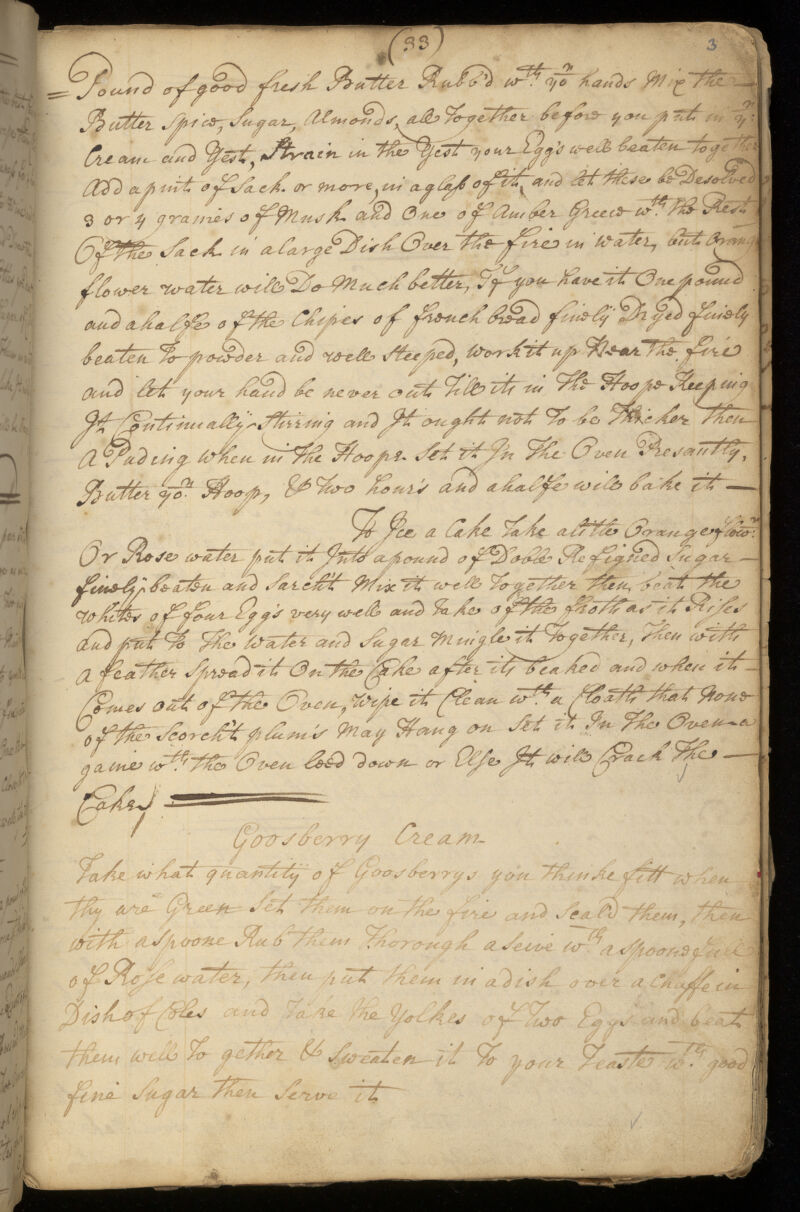 (33)
3
= Pound of good fresh Butter Rubb'd wth. yor hands Mix the —
Butter Spice, Sugar, Almonds, all together before you put in yr:
Cream and Yest, Strain in the Yest your Egg's well beaten together
Add a pint of Sack or more, in a glass of it, and let these be Desolved
3 or 4 graines of Musk and One of Amber Greece wth. the Rest
Of the Sack in a large Dish Over the fire in water, but Orang
flower water will Do Much better, If you have it One pound
and a halfe of the Chipes of french bread finely Dryed finely
beaten to powder and well steeped, work it up Near the fire
and let your hand be never out till its in the Hoope Keeping
It Continually Stirring and It ought not To be Thicker then
A Puding when in the Hoope. Set it In The Oven Presantly,
Butter yor. Hoop, & Two hour's and a halfe will bake it —
To Ice a Cake Take a little Orange flowr:
Or Rose water put it Into a pound of Doble Refigned Sugar —
finely beaten and Sarch't Mix it well Together then, beat the
whites of four Egg's very well and take of the froth as it Rises
and put To The water and Sugar Mingle it Together, Then with
a feather Spread it On the Cake after its beaked and when it —
Comes out of the Oven, wipe it Clean wth. a Cloath that None
of the Scorch't plum's May Hang on Set it In The Oven a
gaine wth. the Oven leed down or Else It will Crack The —
Cake,
Goosberry Cream
Take what quantity of Goosberrys you thinke fitt when
thy are Green Set them on the fire and Scald them, then
with a spoone Rub them Thorough a Seive wth. a spoonefull
of Rose water, then put them in a dish over a Chaffein
Dish of Coles and Take the Yolkes of Two Eggs and beat
them well To gether & Sweaten it To your Teaste wth. good
fine Sugar then Serve it